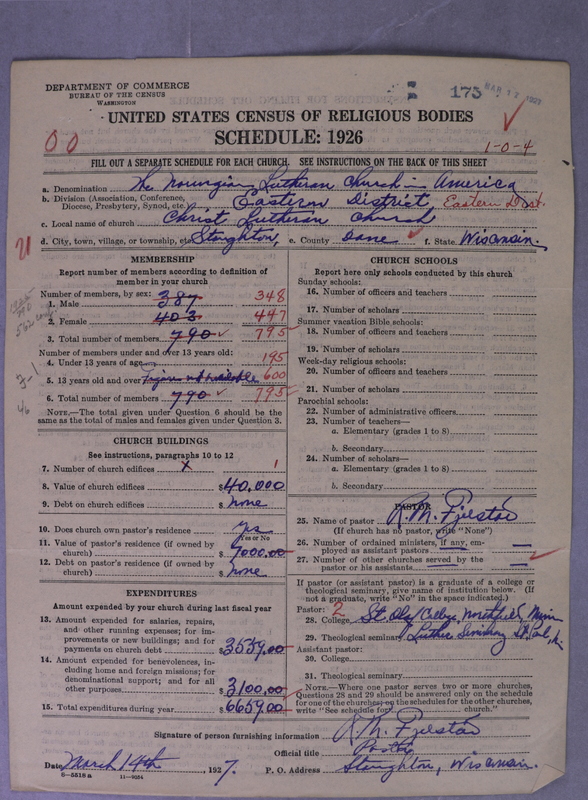 DEPARTMENT OF COMMERCE
BUREAU OF THE CENSUS
WASHINGTON
175
UNITED STATES CENSUS OF RELIGIOUS BODIES
SCHEDULE: 1926
00
1-0-4
FILL OUT A SEPARATE SCHEDULE FOR EACH CHURCH. SEE INSTRUCTIONS ON THE BACK OF THIS SHEET
a. Denomination The Norwegian Lutheran Church in America
b. Division (Association, Conference, Diocese, Presbytery, Synod, etc.) Eastern District Eastern Dist.
c. Local name of church Christ Lutheran Church
d. City, town, village, or township, etc. Stoughton, e. County Dane f. State Wisconsin.
MEMBERSHIP
Report number of members according to definition of
member in your church
Number of members, by sex:
1. Male 387 348
2. Female 403 447
3. Total number of members 790 795
Number of members under and over 13 years old:
4. Under 13 years of age 195
5. 13 years old and over Figures not available 600
6. Total number of members 790 795
NOTE.—The total given under Question 6 should be the
same as the total of males and females given under Question 3.
CHURCH BUILDINGS
See instructions, paragraphs 10 to 12
7. Number of church edifices X 1
8. Value of church edifices $40,000
9. Debt on church edifices $ none
10. Does church own pastor's residence? Yes
Yes or No
11. Value of pastor's residence (if owned by
church) $ 7000.00
12. Debt on pastor's residence (if owned by
church) $ none
EXPENDITURES
Amount expended by your church during last fiscal year
13. Amount expended for salaries, repairs,
and other running expenses; for im-
provements or new buildings; and for
payments on church debt $3559.00
14. Amount expended for benevolences, in-
cluding home and foreign missions; for
denominational support; and for all
other purposes $3100.00
15. Total expenditures during year $6659.00
CHURCH SCHOOLS
Report here only schools conducted by this church
Sunday schools:
16. Number of officers and teachers
17. Number of scholars
Summer vacation Bible schools:
18. Number of officers and teachers
19. Number of scholars
Week-day religious schools:
20. Number of officers and teachers
21. Number of scholars
Parochial schools:
22. Number of administrative officers
23. Number of teachers—
a. Elementary (grades 1 to 8)
b. Secondary
24. Number of scholars—
a. Elementary (grades 1 to 8)
b. Secondary
PASTOR
25. Name of pastor R. M. Fjelstad
(If church has no pastor, write "None")
26. Number of ordained ministers, if any, em-
ployed as assistant pastors —
27. Number of other churches served by the
pastor or his assistants —
If pastor (or assistant pastor) is a graduate of a college or
theological seminary, give name of institution below. (If
not a graduate, write "No" in the space indicated.)
Pastor: 2
28. College St Olaf College Northfield Minn
29. Theological seminary Luther Seminary St Paul
Assistant pastor:
30. College
31. Theological seminary
NOTE.—Where one pastor serves two or more churches,
Questions 28 and 29 should be answered only on the schedule
for one of the churches; on the schedules for the other churches,
write "See schedule for church."
Signature of person furnishing information R. M. Fjelstad
Official title Pastor
Date March 14th, 1927. P. O. Address Stoughton, Wisconsin.
6—5518 a 11—9054